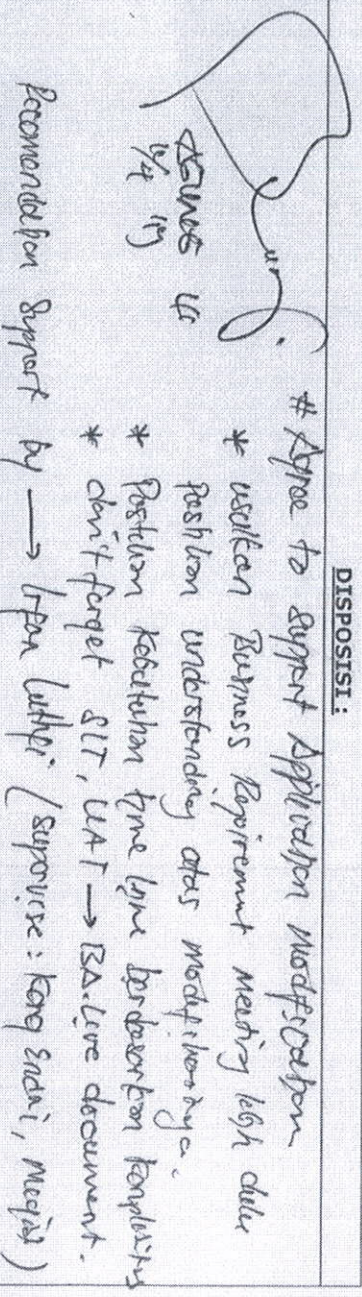 DISPOSISI:
# Agree to support Application modification
* usulkan Business Requirement meeting lebih dulu
pastikan understanding atas modifikasinya.
* Pastikan kebutuhan time line berdasarkan kompleksitas
* don't forget SIT, UAT → BA.Live document.
Recomendation Support by → Irfan Luthfi (supervise: Kang Endri, )